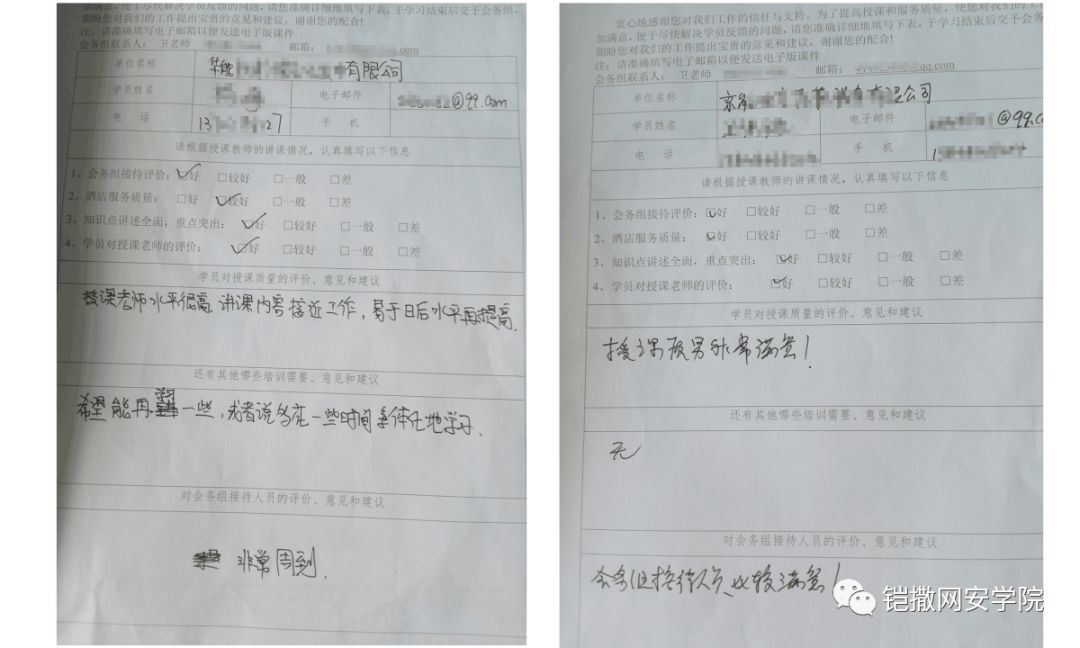 期盼您对我们的工作提出宝贵的意见和建议，谢谢您的配合！
注：请准确填写电子邮箱以便发送电子版课件
会务组联系人： 卫老师 邮箱： .com
单位名称 华能 有限公司
学员姓名 电子邮件 @qq.com
电 话 13 27 手 机
请根据授课教师的讲课情况，认真填写以下信息
1、会务组接待评价：☑好 □较好 □一般 □差
2、酒店服务质量： □好 ☑较好 □一般 □差
3、知识点讲述全面，重点突出： ☑好 □较好 □一般 □差
4、学员对授课老师的评价： ☑好 □较好 □一般 □差
学员对授课质量的评价、意见和建议
授课老师水平很高，讲课内容接近工作，易于日后水平再提高.
还有其他哪些培训需要、意见和建议
希望能再 一些，或者说多花一些时间 系统化地学习.
对会务组接待人员的评价、意见和建议
非常周到.
衷心地感谢您对我们工作的信任与支持。为了提高授课和服务质量，使您对我们的
加满意，便于尽快解决学员反馈的问题，请您准确详细地填写下表，于学习结束后交予会
期盼您对我们的工作提出宝贵的意见和建议，谢谢您的配合！
注：请准确填写电子邮箱以便发送电子版课件
会务组联系人： 卫老师 邮箱： qq.com
单位名称 京能 有限公司
学员姓名 电子邮件 @qq.c
电 话 手 机 1
请根据授课教师的讲课情况，认真填写以下信息
1、会务组接待评价：☑好 □较好 □一般 □差
2、酒店服务质量： ☑好 □较好 □一般 □差
3、知识点讲述全面，重点突出： ☑好 □较好 □一般 □差
4、学员对授课老师的评价： ☑好 □较好 □一般 □差
学员对授课质量的评价、意见和建议
授课质量非常满意！
还有其他哪些培训需要、意见和建议
无
对会务组接待人员的评价、意见和建议
会务组接待人员比较满意！
铠撒网安学院